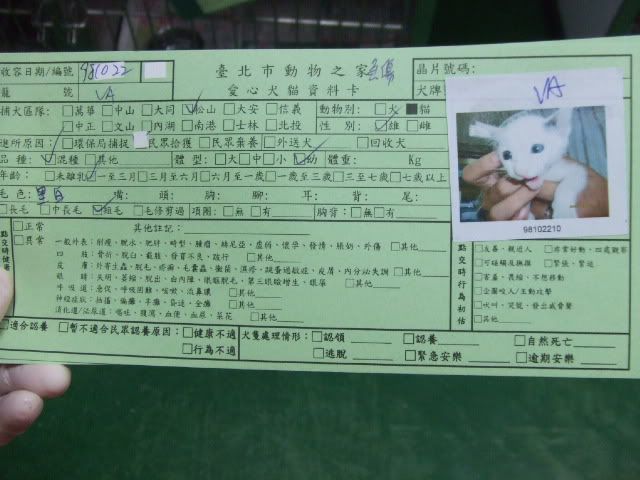 收容日期/編號 981022
臺北市動物之家
晶片號碼:
籠 號 VA
愛心犬貓資料卡
犬牌
VA
捕犬區隊: □萬華 □中山 □大同 ☑松山 □大安 □信義 動物別: □犬 ■貓
□中正 □文山 □內湖 □南港 □士林 □北投 性 別: ☑雄 □雌
進所原因: □環保局捕捉 □民眾拾獲 □民眾棄養 □外送犬 □回收犬
品 種: ☑混種 □其他 體 型: □大 □中 □小 ☑幼 體重: Kg
年齡: □未離乳 ☑一至三月 □三至六月 □六月至一歲 □一歲至三歲 □三至七歲 □七歲以上
毛 色: 黑白 嘴: 頭: 胸: 腳: 耳: 背: 尾:
□長毛 □中長毛 ☑短毛 □毛修剪過 項圈: □無 □有 胸背: □無 □有
98102210
點交時健康
□正常
□異常
其他註記:
一般外表: 削瘦、脫水、肥胖、畸型、腫瘤、絲尼亞、虛弱、懷孕、發情、脹奶、外傷 □其他
四 肢: 骨折、脫臼、截肢、發育不良、跛行 □其他
皮 膚: 外寄生蟲、脫毛、疥癬、毛囊蟲、黴菌、濕疹、跳蚤過敏症、皮屑、內分泌失調 □其他
眼 睛: 失明、茗縮、脫出、白內障、眼瞼脫毛、第三眼瞼增生、眼屎 □其他
呼吸道: 急促、呼吸困難、咳嗽、流鼻膿 □其他
神經症狀: 抽搐、偏癱、半癱、昏迷、全癱 □其他
消化道/泌尿道: 嘔吐、腹瀉、血便、血尿、緊花 □其他
點交時行為初估
□友善、親近人 □非常好動、四處觀察
□可碰觸及撫摸 □緊張、緊迫
□害羞、畏縮、不想移動
□企圖咬人/主動攻擊
□吠叫、哭號、發出威脅聲
□其他
□適合認養 □暫不適合民眾認養原因: □健康不適
□行為不適
犬隻處理情形: □認領 □認養 □自然死亡
□逃脫 □緊急安樂 □逾期安樂